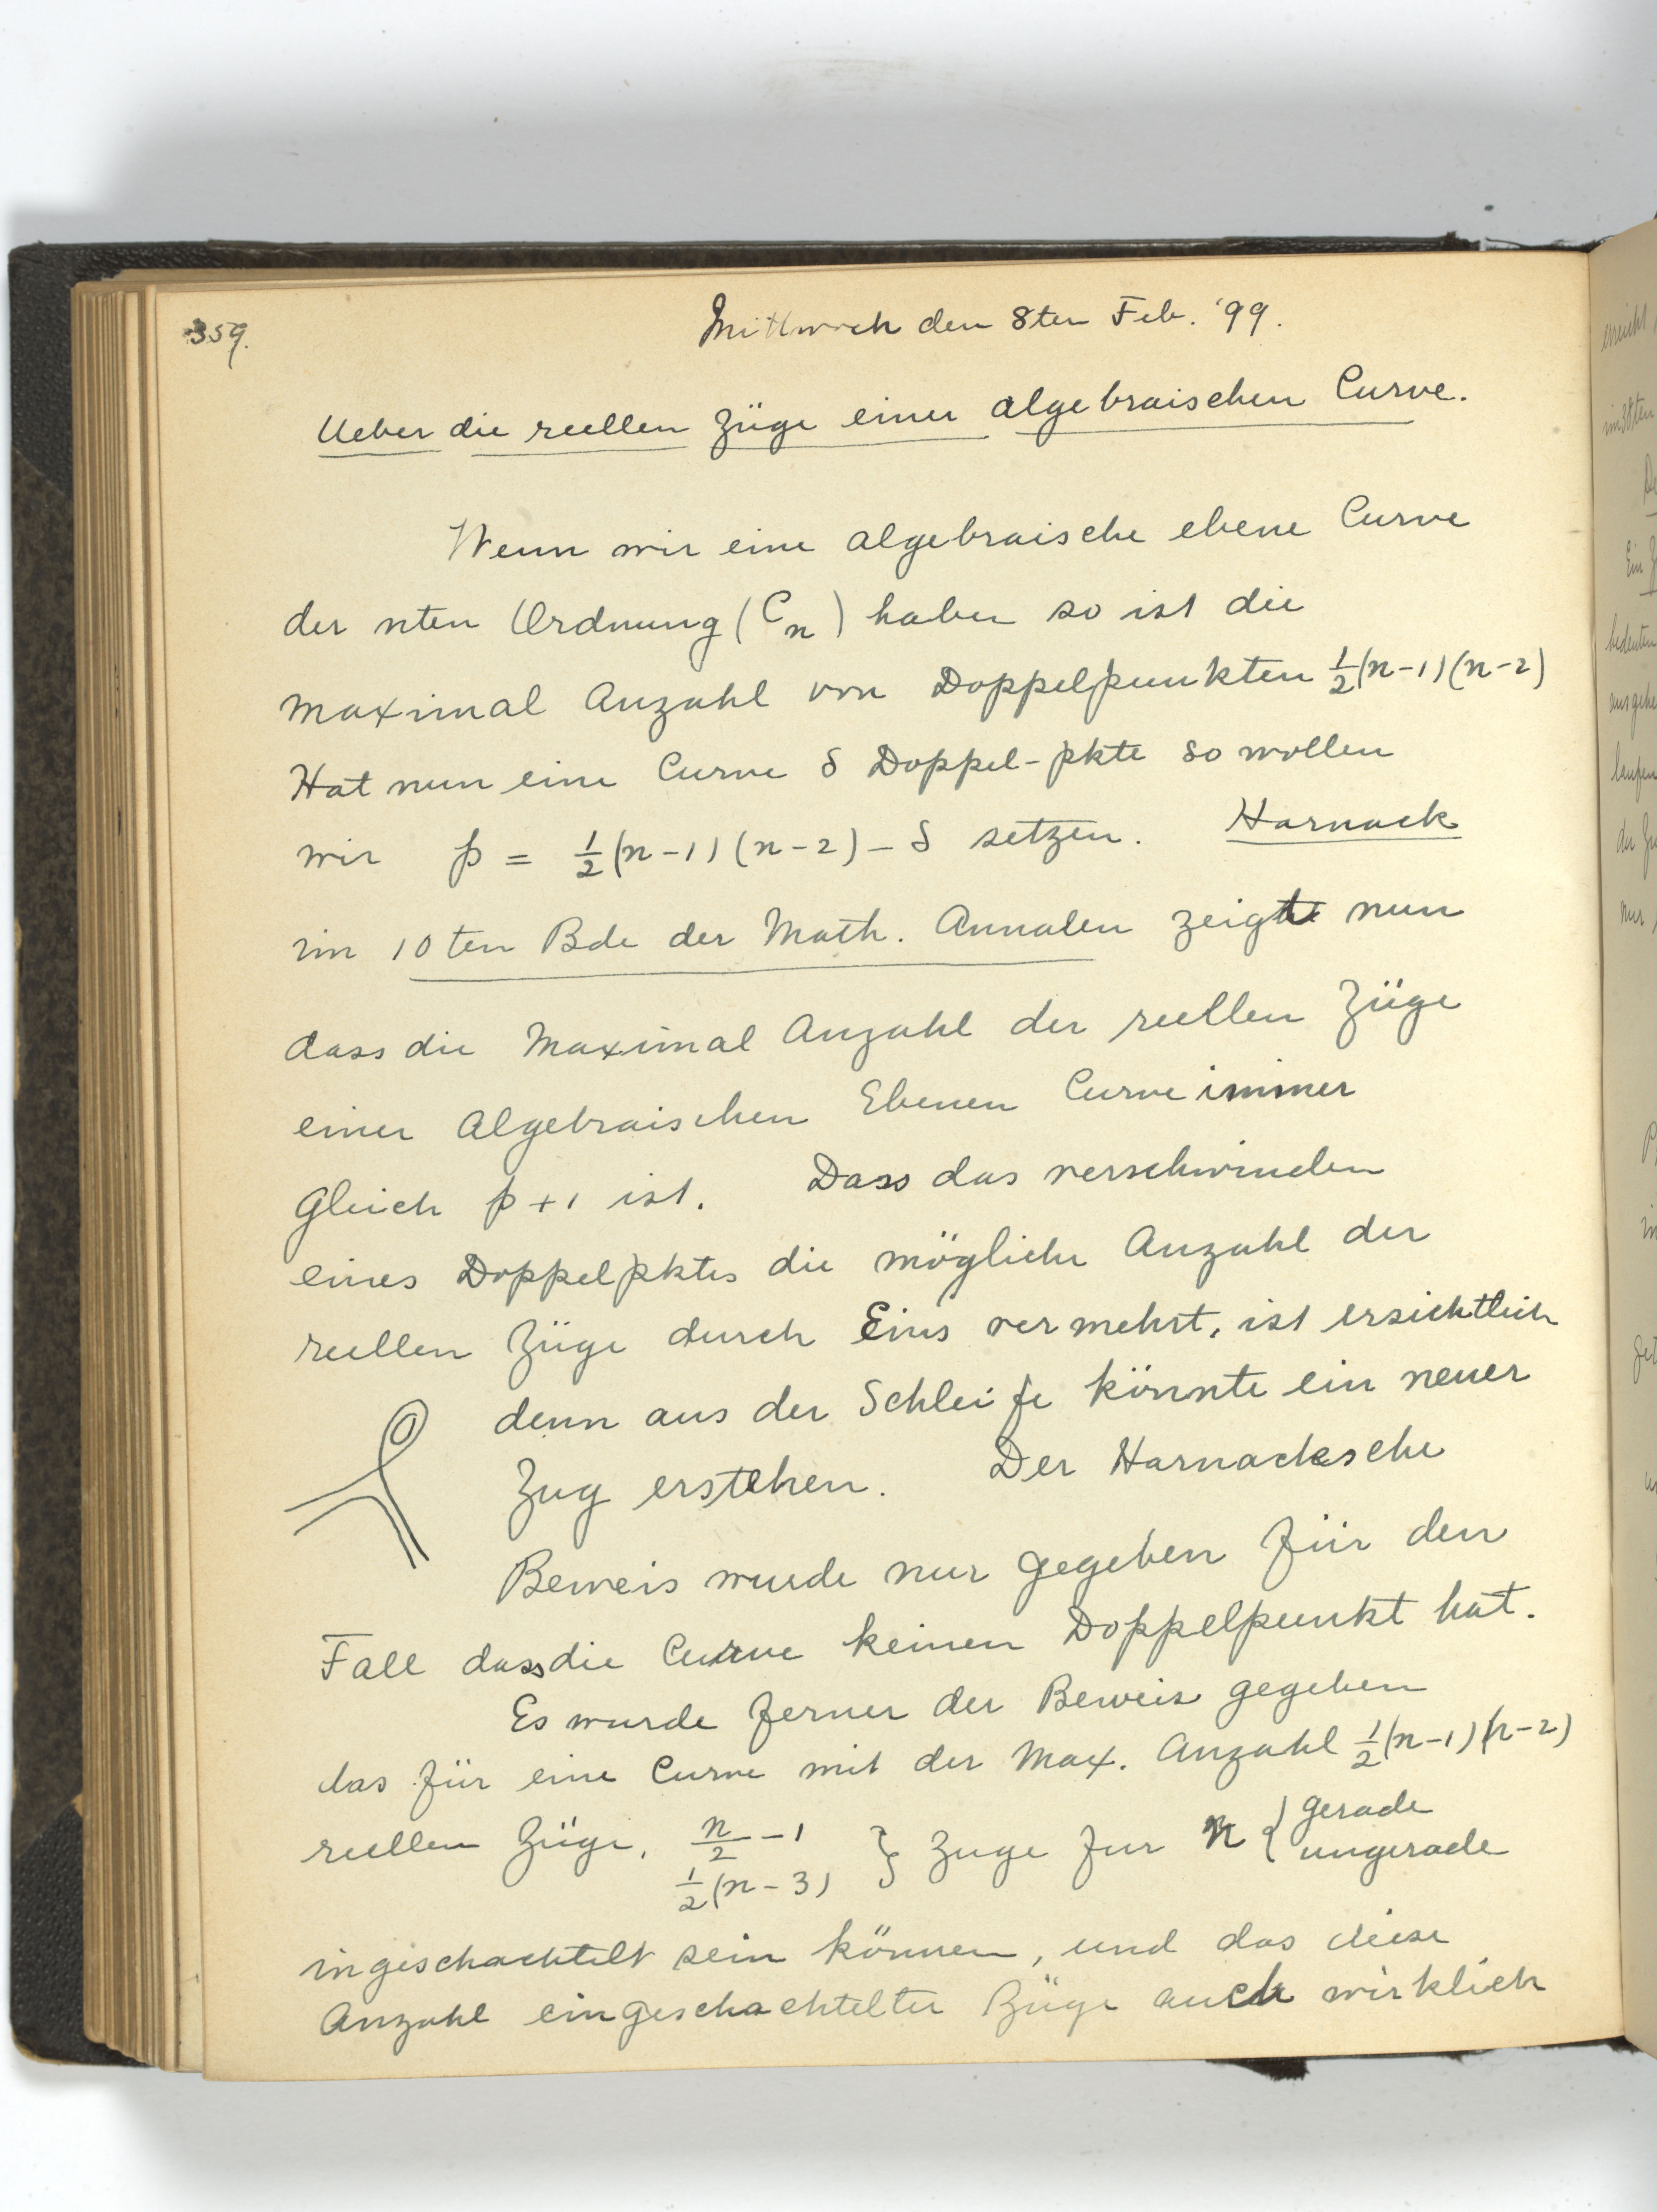 359.
Mittwoch den 8ten Feb. '99.
Ueber die reellen Züge einer algebraischen Curve.
Wenn wir eine algebraische ebene Curve
der nten Ordnung (C_n) haben so ist die
Maximal Anzahl von Doppelpunkten ½(n-1)(n-2)
Hat nun eine Curve δ Doppel-pkte so wollen
wir p = ½(n-1)(n-2) - δ setzen. Harnack
im 10ten Bde der Math. Annalen zeigte nun
dass die Maximal Anzahl der reellen Züge
einer Algebraischen Ebenen Curve immer
Gleich p+1 ist. Dass das verschwinden
eines Doppelpktes die mögliche Anzahl der
reellen Züge durch Eins vermehrt, ist ersichtlich
denn aus der Schleife könnte ein neuer
Zug erstehen. Der Harnacksche
Beweis wurde nur gegeben für den
Fall dass die Curve keinen Doppelpunkt hat.
Es wurde ferner der Beweis gegeben
das für eine Curve mit der Max. Anzahl ½(n-1)(n-2)
reellen Züge, n/2 - 1 } Zuge fur n { gerade
½(n-3) ungerade
ingeschachtelt sein können, und das diese
Anzahl eingeschachtelter Züge auch wirklich